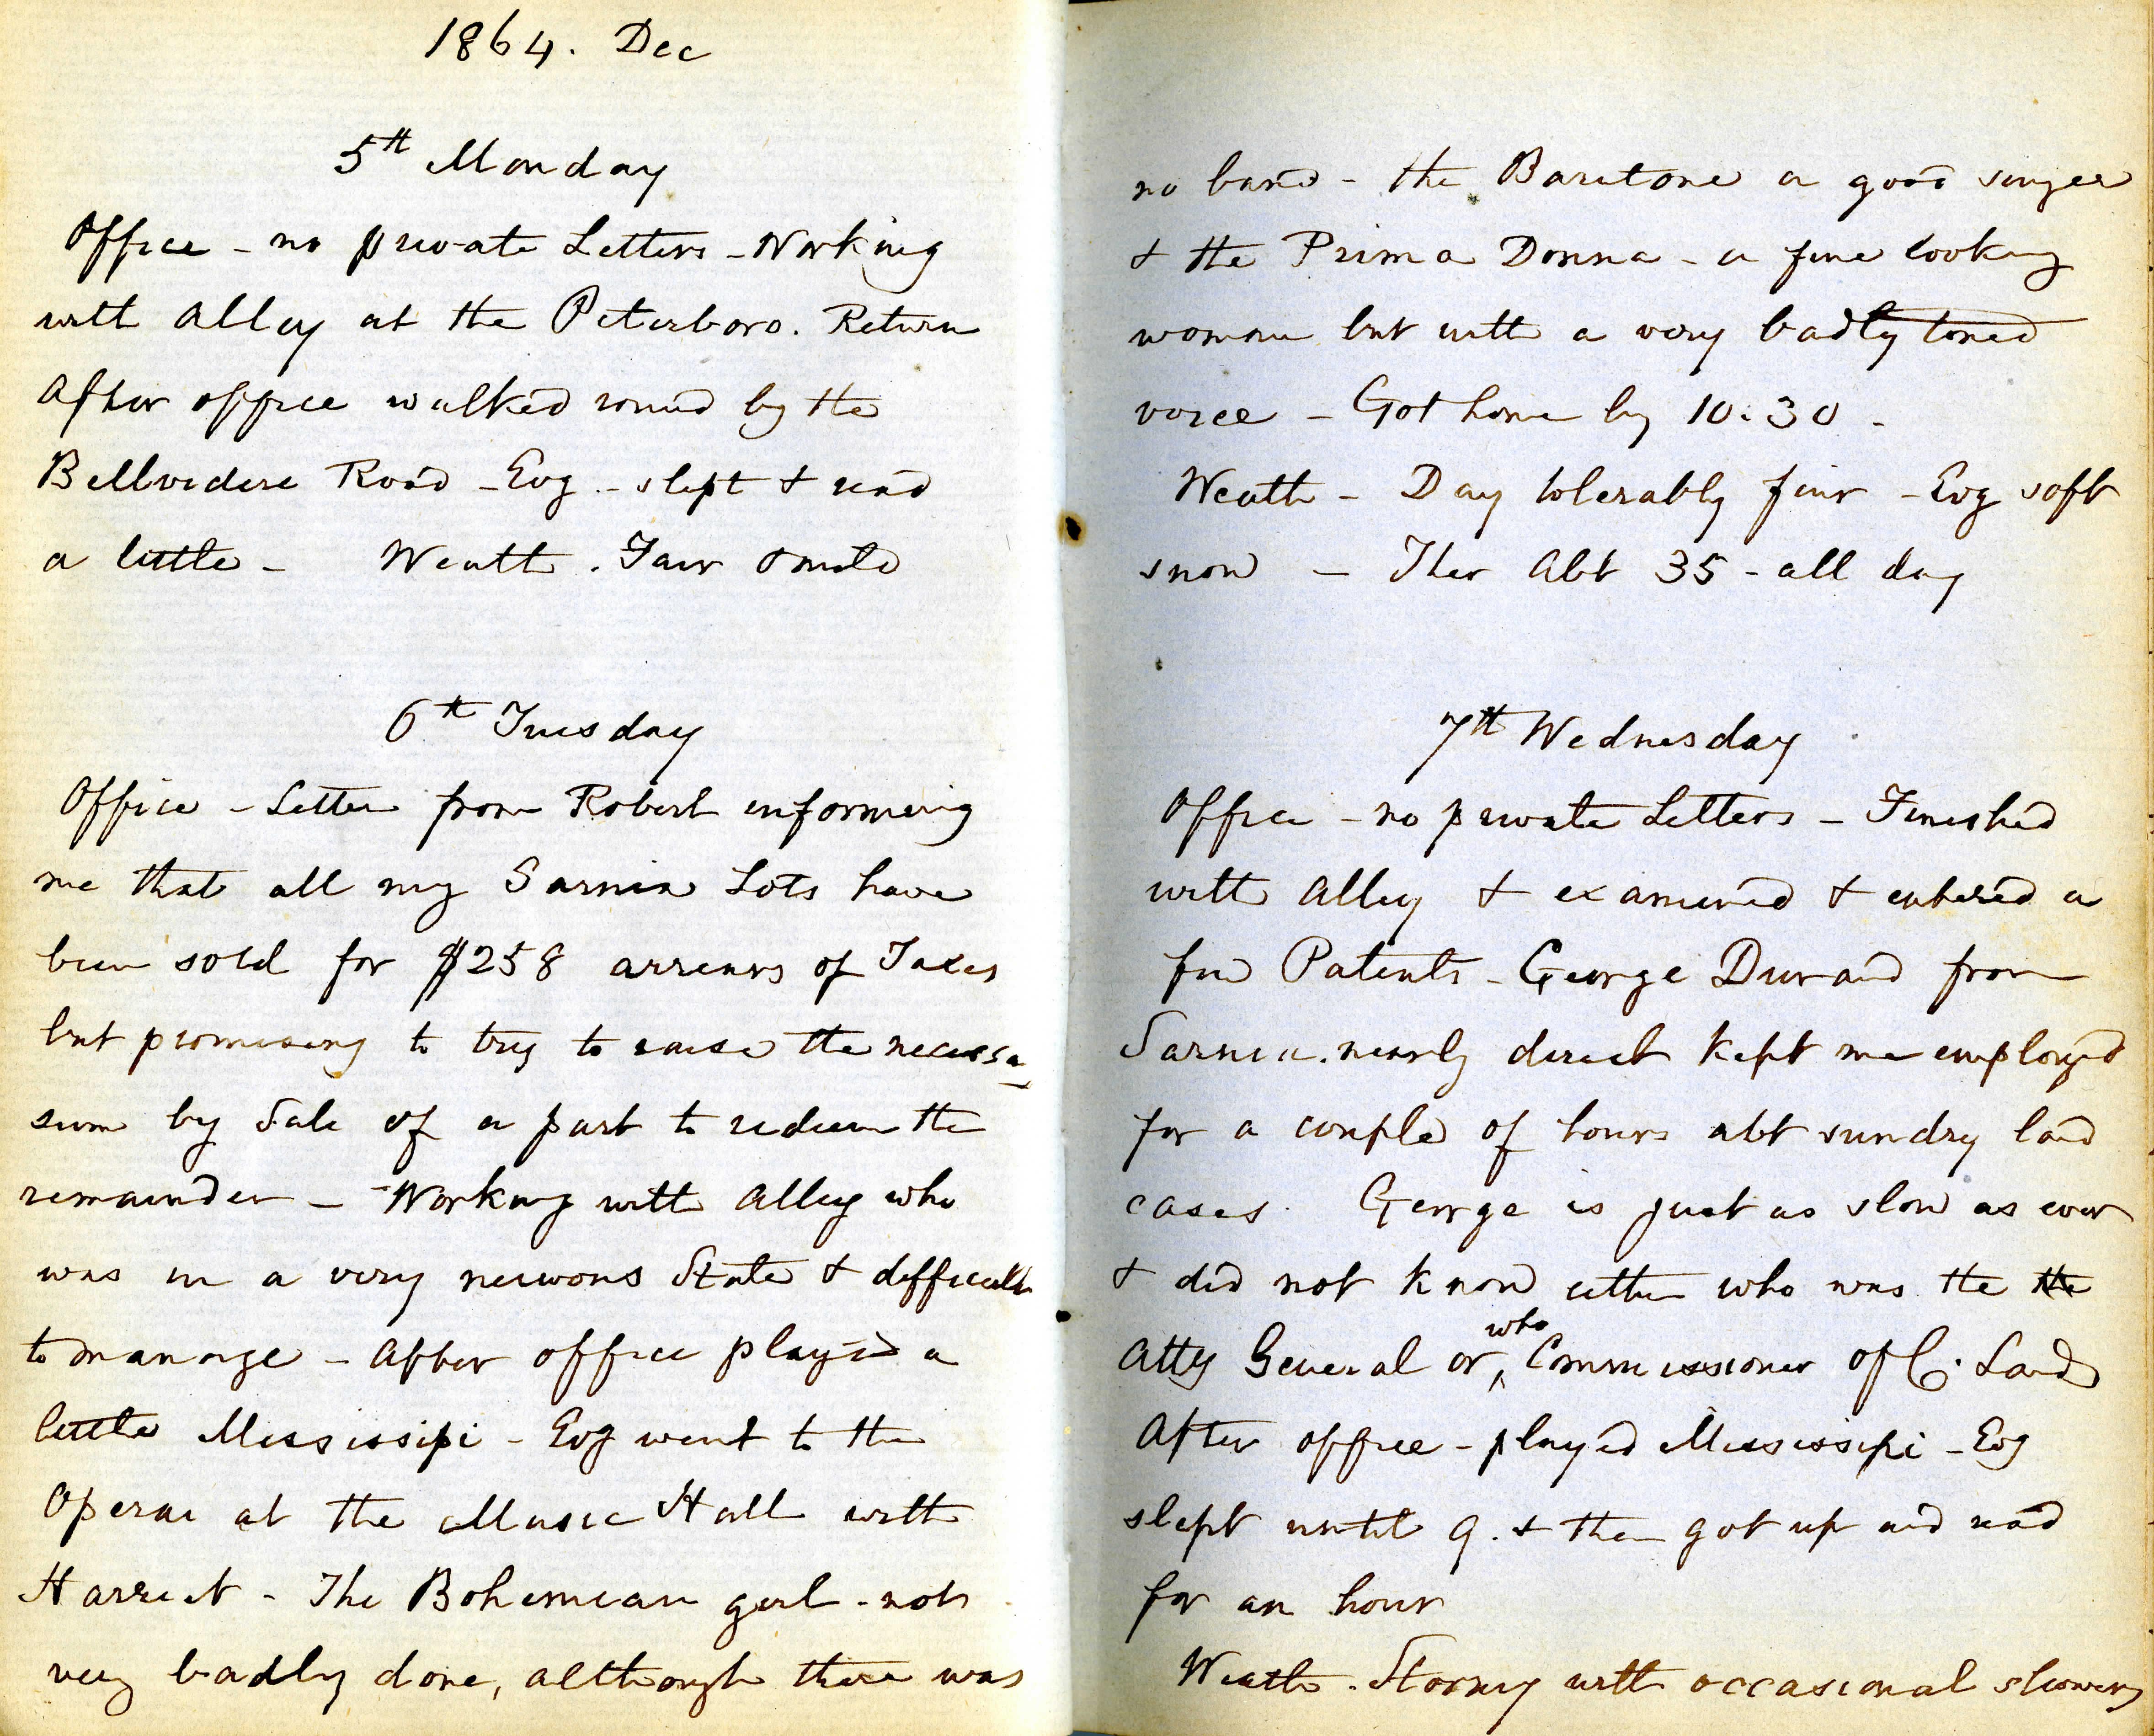 1864. Dec
5th Monday
Office - no private Letters - Working
with Alley at the Peterboro. Return
After office walked round by the
Bellvidere Road - Evg - slept & read
a little - Weath. Fair & mild
6th Tuesday
Office - Letter from Robert informing
me that all my Sarnia Lots have
been sold for $258 arrears of Taxes
but promising to try to raise the necessa
sum by Sale of a part to redeem the
remainder - Working with Alley who
was in a very nervous State & difficult
to manage - After office played a
little Mississipi - Evg went to the
Opera at the Music Hall with
Harriet - The Bohemian girl - not
very badly done, although there was
no band - the Baritone a good singer
& the Prima Donna - a fine looking
woman but with a very badly toned
voice - Got home by 10.30 -
Weath - Day tolerably fair - Evg soft
snow - Ther Abt 35 - all day
7th Wednesday
Office - no private Letters - Finished
with Alley & examined & entered a
few Patents - George Durand from
Sarnia. nearly direct kept me employed
for a couple of hours abt sundry land
cases. George is just as slow as ever
& did not know either who was the the
Atty General or who Commissioner of C. Lands
After office - played Mississipi - Evg
slept until 9. & then got up and read
for an hour
Weath. Stormy with occasional showers